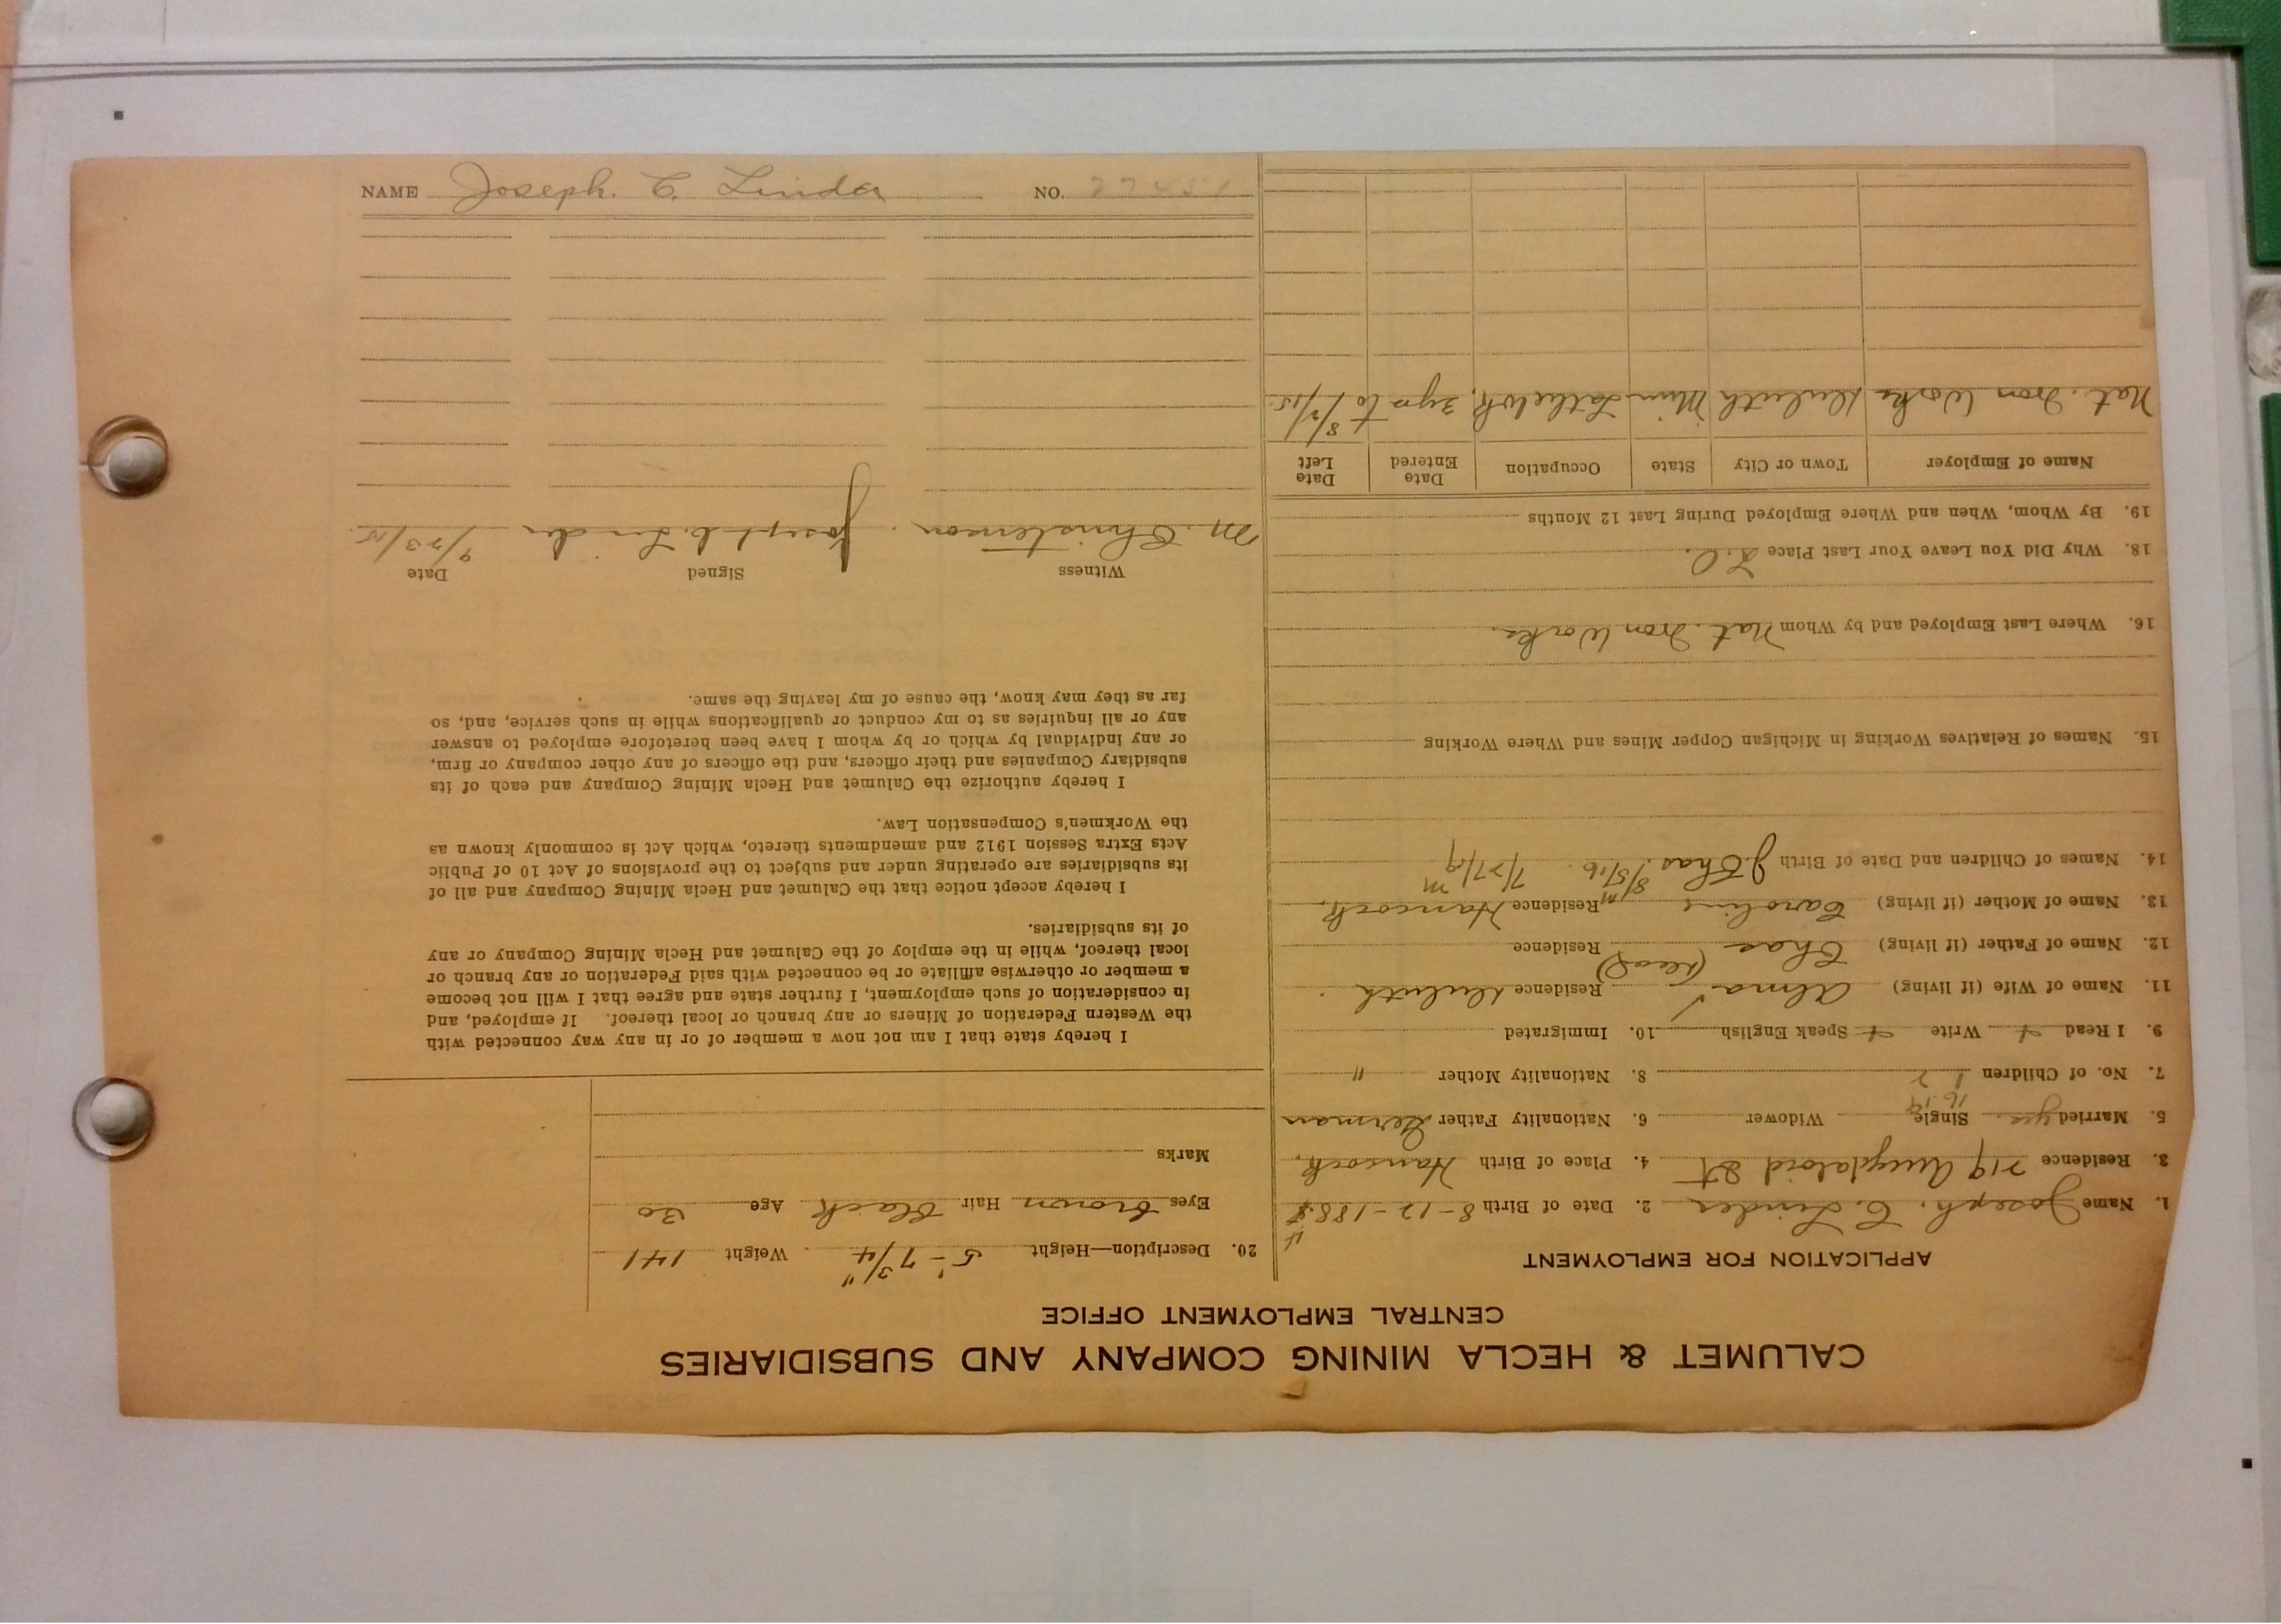 CALUMET & HECLA MINING COMPANY AND SUBSIDIARIES
CENTRAL EMPLOYMENT OFFICE
APPLICATION FOR EMPLOYMENT
1. Name Joseph. C. Linder 2. Date of Birth 8-12-188
3. Residence 719 Amygdaloid St 4. Place of Birth Hancock,
5. Married yes. Single Widower 6. Nationality Father German
16 19
7. No. of Children 1 2 8. Nationality Mother "
9. I Read Write Speak English 10. Immigrated
11. Name of Wife (if living) Alma Residence Duluth
12. Name of Father (if living) Chas (Dead) Residence
13. Name of Mother (if living) Caroline Residence Hancock,
14. Names of Children and Date of Birth J. Chas. 8/5/16 m 7/27/19 m
15. Names of Relatives Working in Michigan Copper Mines and Where Working
16. Where Last Employed and by Whom Nat. Iron Works.
18. Why Did You Leave Your Last Place
19. By Whom, When and Where Employed During Last 12 Months
Name of Employer Town or City State Occupation Date Entered Date Left
Nat. Iron Works Duluth Minn 3 yrs to
20. Description—Height 5'-7 3/4" Weight 141
Eyes brown Hair Black Age 30
Marks
I hereby state that I am not now a member of or in any way connected with
the Western Federation of Miners or any branch or local thereof. If employed, and
in consideration of such employment, I further state and agree that I will not become
a member or otherwise affiliate or be connected with said Federation or any branch or
local thereof, while in the employ of the Calumet and Hecla Mining Company or any
of its subsidiaries.
I hereby accept notice that the Calumet and Hecla Mining Company and all of
its subsidiaries are operating under and subject to the provisions of Act 10 of Public
Acts Extra Session 1912 and amendments thereto, which Act is commonly known as
the Workmen's Compensation Law.
I hereby authorize the Calumet and Hecla Mining Company and each of its
subsidiary Companies and their officers, and the officers of any other company or firm,
or any individual by which or by whom I have been heretofore employed to answer
any or all inquiries as to my conduct or qualifications while in such service, and, so
far as they may know, the cause of my leaving the same.
Witness Signed Date
M. Christenson. Joseph C. Linder 9/23/15.
NAME Joseph. C. Linder NO.